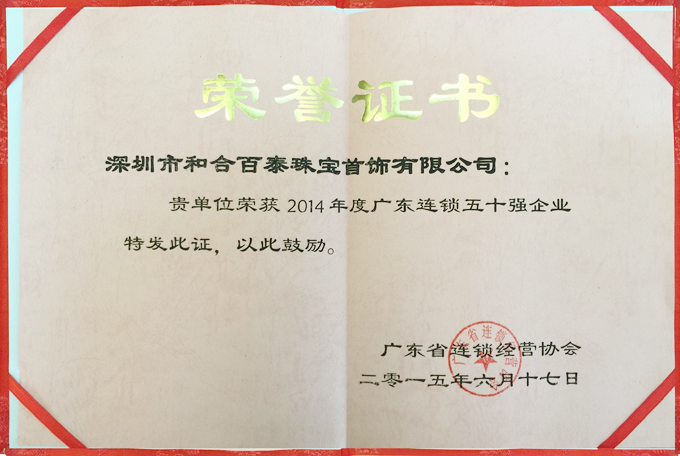 荣誉证书
深圳市和合百泰珠宝首饰有限公司：
贵单位荣获2014年度广东连锁五十强企业
特发此证，以此鼓励。
广东省连锁经营协会
二零一五年六月十七日